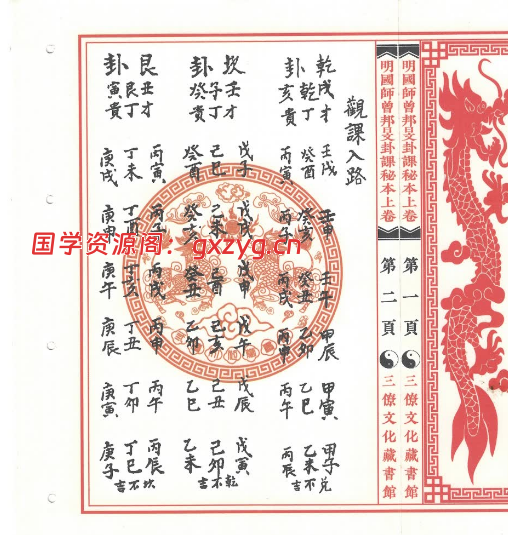 明國師曾邦旻卦課秘本上卷 第一頁 三僚文化藏書館
明國師曾邦旻卦課秘本上卷 第二頁 三僚文化藏書館
觀課入路
乾戌才 壬戌 壬申 壬午 甲辰 甲寅 甲子兌
乾丁 癸酉 癸亥 癸丑 乙卯 乙巳 乙未不
卦亥貴 丙寅 丙子 丙戌 丙申 丙午 丙辰吉
坎壬才 戊子 戊戌 戊申 戊午 戊辰 戊寅乾
子丁 己巳 己未 己酉 己亥 己丑 己卯不
卦癸貴 癸酉 癸亥 癸丑 乙卯 乙巳 乙未吉
艮丑才 丙寅 丙子 丙戌 丙申 丙午 丙辰坎
艮丁 丁未 丁酉 丁亥 丁丑 丁卯 丁巳不
卦寅貴 庚戌 庚申 庚午 庚辰 庚寅 庚子吉
国学资源阁：gxzyg.cn